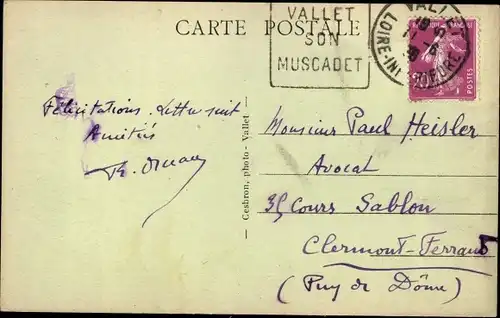 CARTE POSTALE
VALLET
SON
MUSCADET
VALLET
LOIRE-INFERIEURE
Félicitations. Lettre suit
Amitiés
Monsieur Paul Heisler
Avocat
35 Cours Sablon
Clermont-Ferrand
(Puy de Dôme)
Cesbron, photo - Vallet
POSTES